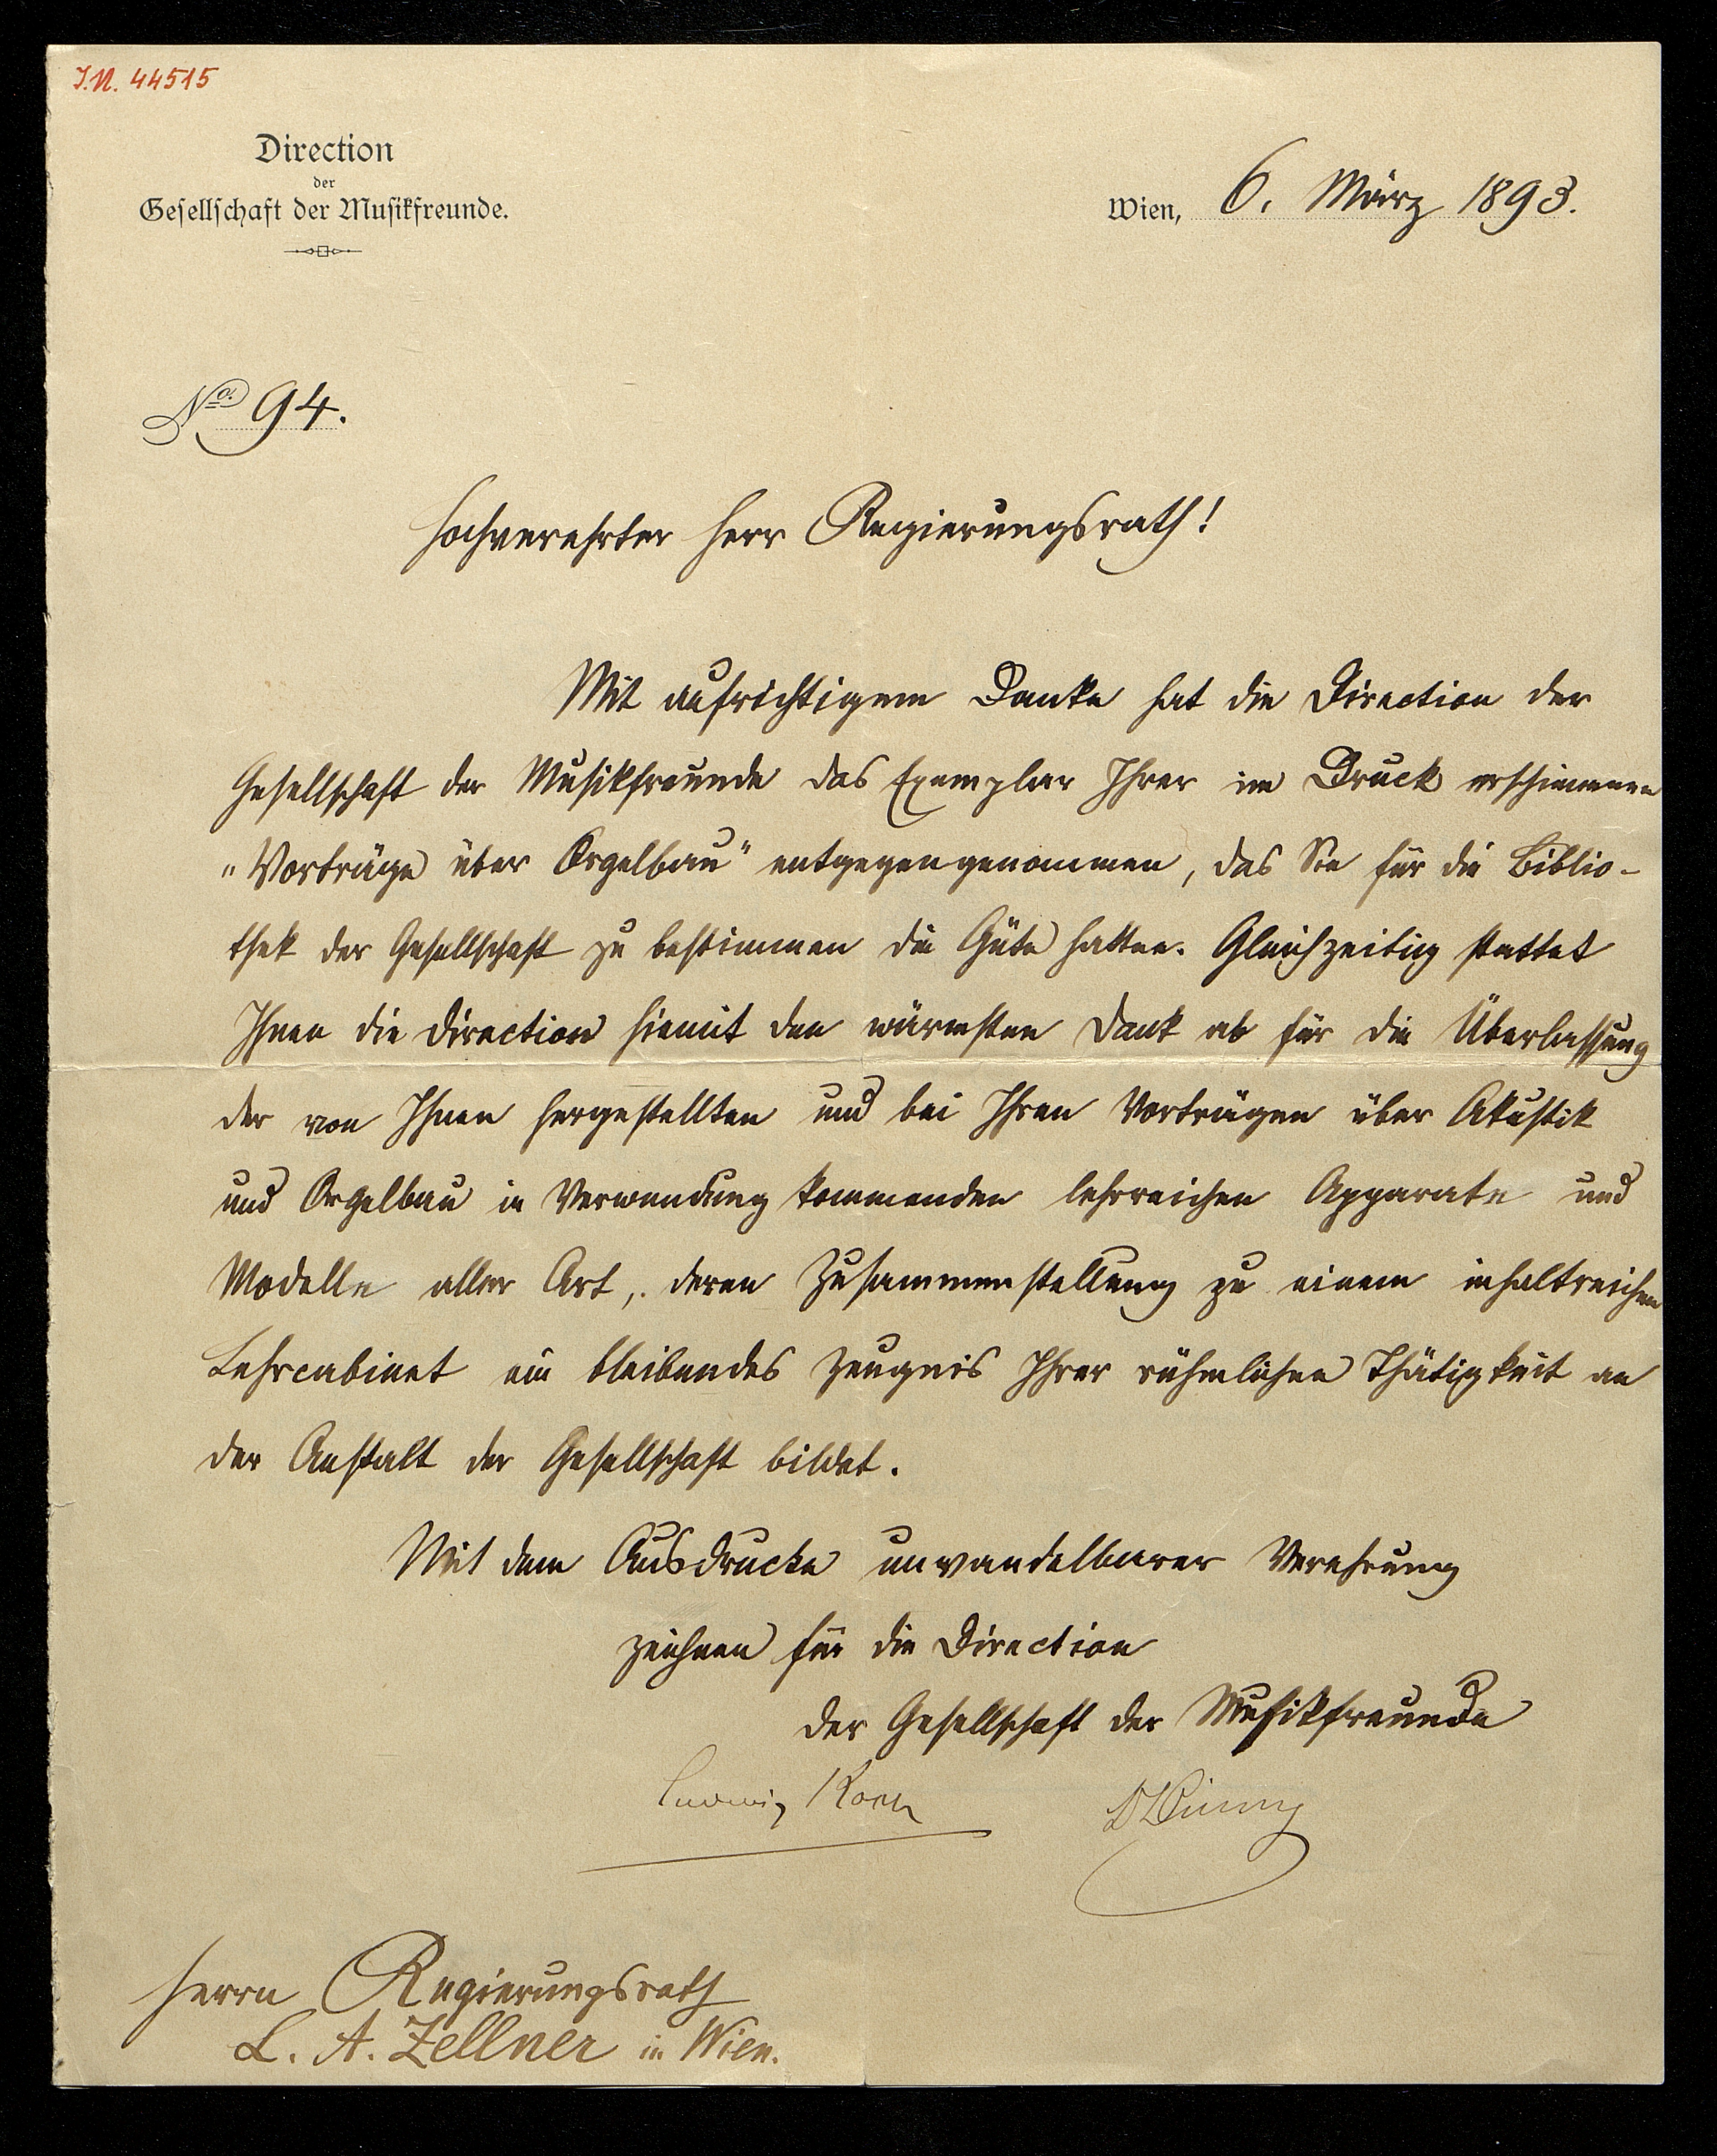 I.N. 44515
Direction
der
Gesellschaft der Musikfreunde.
Wien, 6. März 1893.
No. 94.
Hochverehrter Herr Regierungsrath!
Mit aufrichtigem Danke hat die Direction der
Gesellschaft der Musikfreunde das Exemplar Ihrer im Druck erschienenen
„Vorträge über Orgelbau" entgegengenommen, das Sie für die Biblio-
thek der Gesellschaft zu bestimmen die Güte hatten. Gleichzeitig stattet
Ihnen die Direction hiemit den wärmsten Dank ab für die Überlassung
der von Ihnen hergestellten und bei Ihren Vorträgen über Akustik
und Orgelbau in Verwendung kommenden lehrreichen Apparate und
Modelle aller Art, deren Zusammenstellung zu einem inhaltreichen
Lehrcabinet ein bleibendes Zeugnis Ihrer rühmlichen Thätigkeit an
der Anstalt der Gesellschaft bildet.
Mit dem Ausdrucke unwandelbarer Verehrung
zeichnen für die Direction
der Gesellschaft der Musikfreunde
Ludwig Koch
Herrn Regierungsrath
L. A. Zellner in Wien.